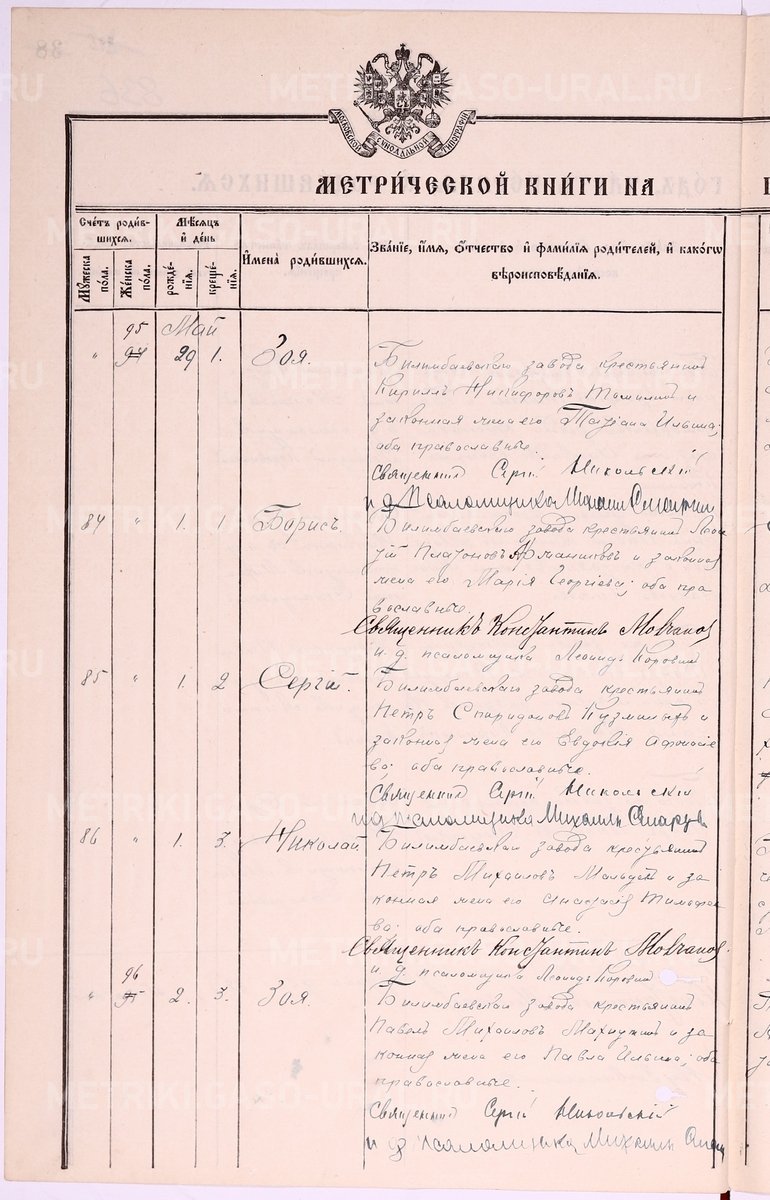 METRIKI.GASO-URAL.RU
МОСКОВСКОЙ СѴНОДАЛЬНОЙ ТИПОГРАФІИ
МЕТРИ́ЧЕСКОЙ КНИ́ГИ НА
Сче́тъ роди́вшихся.
Мѣ́сяцъ и҆ де́нь
И҆мена̀ роди́вшихся.
Зва́нїе, и҆́мя, ѻ҆́тчество и҆ фами́лїя роди́телей, и҆ како́гѡ
вѣроисповѣ́данїя.
Мꙋ́жеска по́ла.
Же́нска по́ла.
рожде́нїя.
креще́нїя.
95 Май
" 94 29 1. Зоя.
Билимбаевскаго завода крестьянинъ
Кириллъ Никифоровъ и
законная жена его Татіана Ильина;
оба православные.
Священникъ Сергій Никольскій
и д псаломщика Михаилъ
84 " 1. 1 Борисъ.
Билимбаевскаго завода крестьянинъ
Платоновъ и законная
жена его Марія Георгіева; оба пра
вославные.
Священникъ Константинъ
и. д. псаломщика Леонидъ Коровинъ
85 " 1. 2 Сергій.
Билимбаевскаго завода крестьянинъ
Петръ Спиридоновъ и
законная жена его Евдокія Афонасіе
ва; оба православные.
Священникъ Сергій Никольскій
и д псаломщика Михаилъ
86 " 1. 3. Николай.
Билимбаевскаго завода крестьянинъ
Петръ Михаиловъ и за
конная жена его
ва; оба православные.
Священникъ Константинъ
и д. псаломщика Леонидъ Коровинъ
96
" 95 2. 3. Зоя.
Билимбаевскаго завода крестьянинъ
Павелъ Михаиловъ и за
конная жена его Павла Ильина; оба
православные.
Священникъ Сергій Никольскій
и д псаломщика Михаилъ